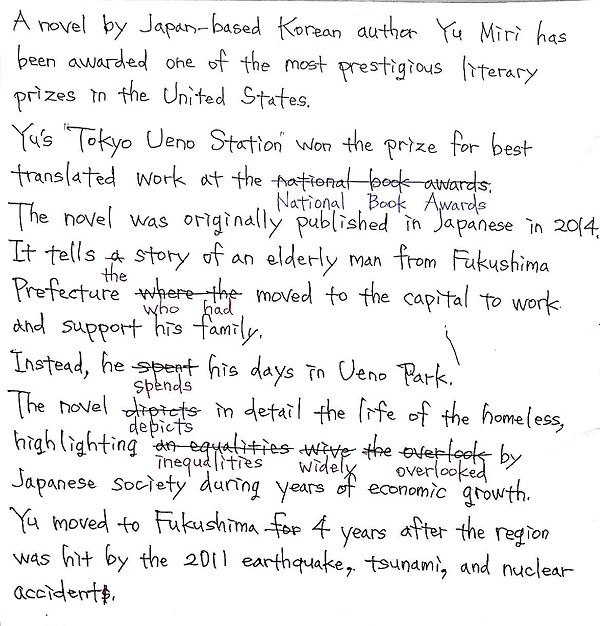 A novel by Japan-based Korean author Yu Miri has
been awarded one of the most prestigious literary
prizes in the United States.
Yu's "Tokyo Ueno Station" won the prize for best
translated work at the national book awards.
National Book Awards
The novel was originally published in Japanese in 2014.
It tells a story of an elderly man from Fukushima
the
Prefecture where the moved to the capital to work
who had
and support his family.
Instead, he spent his days in Ueno Park.
spends
The novel dipicts in detail the life of the homeless,
depicts
highlighting an equalities wive the overlook by
inequalities widely overlooked
Japanese society during years of economic growth.
Yu moved to Fukushima for 4 years after the region
was hit by the 2011 earthquake, tsunami, and nuclear
accidents.